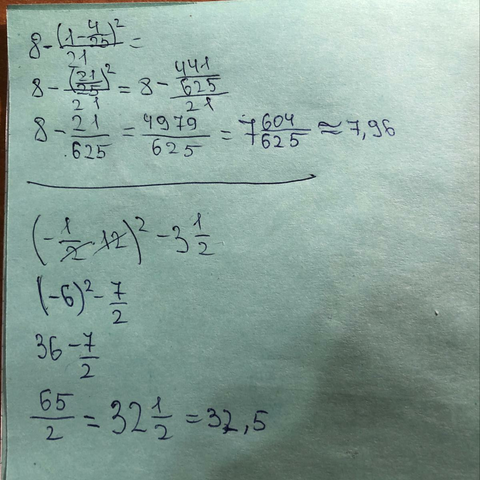 8 - (1 - 4/25)² / 21 =
8 - (21/25)² / 21 = 8 - 441/625 / 21
8 - 21/625 = 4979/625 = 7 604/625 ≈ 7,96
(-1/2 · 12)² - 3 1/2
(-6)² - 7/2
36 - 7/2
65/2 = 32 1/2 = 32,5